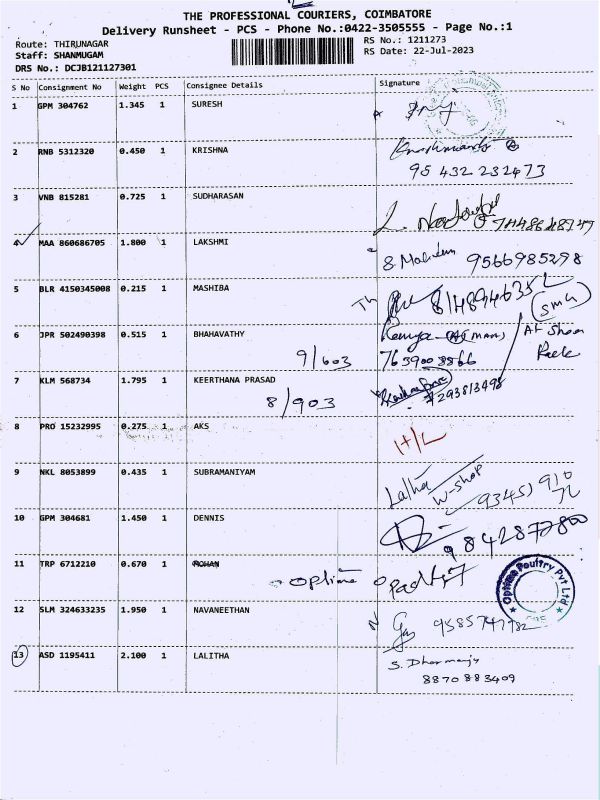 THE PROFESSIONAL COURIERS, COIMBATORE
Delivery Runsheet - PCS - Phone No.:0422-3505555 - Page No.:1
Route: THIRUNAGAR RS No.: 1211273
Staff: SHANMUGAM RS Date: 22-Jul-2023
DRS No.: DCJB121127301
S No Consignment No Weight PCS Consignee Details Signature
1 GPM 304762 1.345 1 SURESH
2 RNB 5312320 0.450 1 KRISHNA
95 432 232473
3 VNB 815281 0.725 1 SUDHARASAN
4 MAA 860686705 1.800 1 LAKSHMI
9566985298
5 BLR 4150345008 0.215 1 MASHIBA
(SMG)
6 JPR 502490398 0.515 1 BHAHAVATHY
9/603 7639008866
7 KLM 568734 1.795 1 KEERTHANA PRASAD
8/903 7293813498
8 PRO 15232995 0.275 1 AKS
9 NKL 8053899 0.435 1 SUBRAMANIYAM
Latha W-shop
10 GPM 304681 1.450 1 DENNIS
11 TRP 6712210 0.670 1 ROHAN
Optima
Optima Poultry Pvt Ltd
12 SLM 324633235 1.950 1 NAVANEETHAN
13 ASD 1195411 2.100 1 LALITHA
8870883409